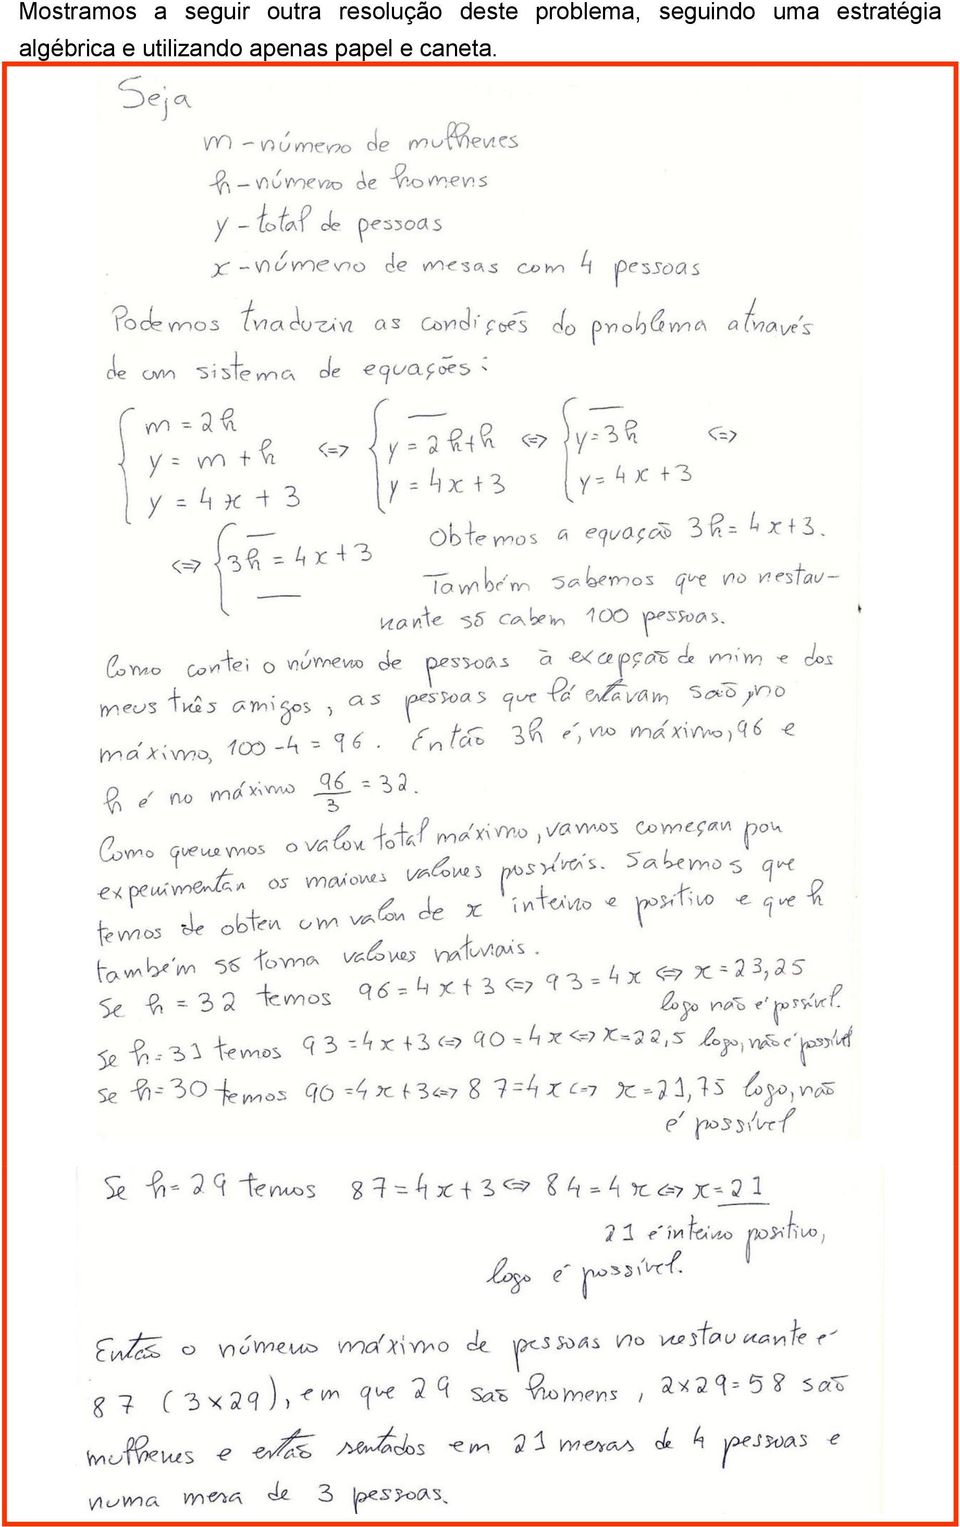 Mostramos a seguir outra resolução deste problema, seguindo uma estratégia
algébrica e utilizando apenas papel e caneta.
Seja
m - número de mulheres
h - número de homens
y - total de pessoas
x - número de mesas com 4 pessoas
Podemos traduzir as condições do problema através
de um sistema de equações:
{ m = 2h
y = m + h
y = 4x + 3
<=> { —
y = 2h+h
y = 4x+3
<=> { —
y = 3h
y = 4x+3
<=>
<=> { —
3h = 4x+3
—
Obtemos a equação 3h = 4x+3.
Também sabemos que no restau-
rante só cabem 100 pessoas.
Como contei o número de pessoas à excepção de mim e dos
meus três amigos, as pessoas que lá estavam são, no
máximo, 100-4 = 96. Então 3h é, no máximo, 96 e
h é no máximo 96/3 = 32.
Como queremos o valor total máximo, vamos começar por
experimentar os maiores valores possíveis. Sabemos que
temos de obter um valor de x inteiro e positivo e que h
também só toma valores naturais.
Se h = 32 temos 96 = 4x+3 <=> 93 = 4x <=> x = 23,25
logo não é possível.
Se h = 31 temos 93 = 4x+3 <=> 90 = 4x <=> x = 22,5 logo, não é possível
Se h = 30 temos 90 = 4x+3 <=> 87 = 4x <=> x = 21,75 logo, não
é possível
Se h = 29 temos 87 = 4x+3 <=> 84 = 4x <=> x = 21
21 é inteiro positivo,
logo é possível.
Então o número máximo de pessoas no restaurante é
87 (3×29), em que 29 são homens, 2×29 = 58 são
mulheres e estão sentados em 21 mesas de 4 pessoas e
numa mesa de 3 pessoas.